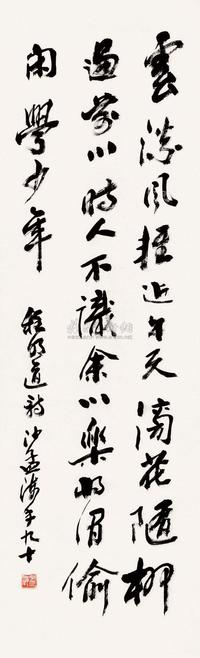 雲淡風輕近午天滴花隨柳
過前川時人不識余心樂將謂偷
閑學少年
程明道詩沙孟海年九十